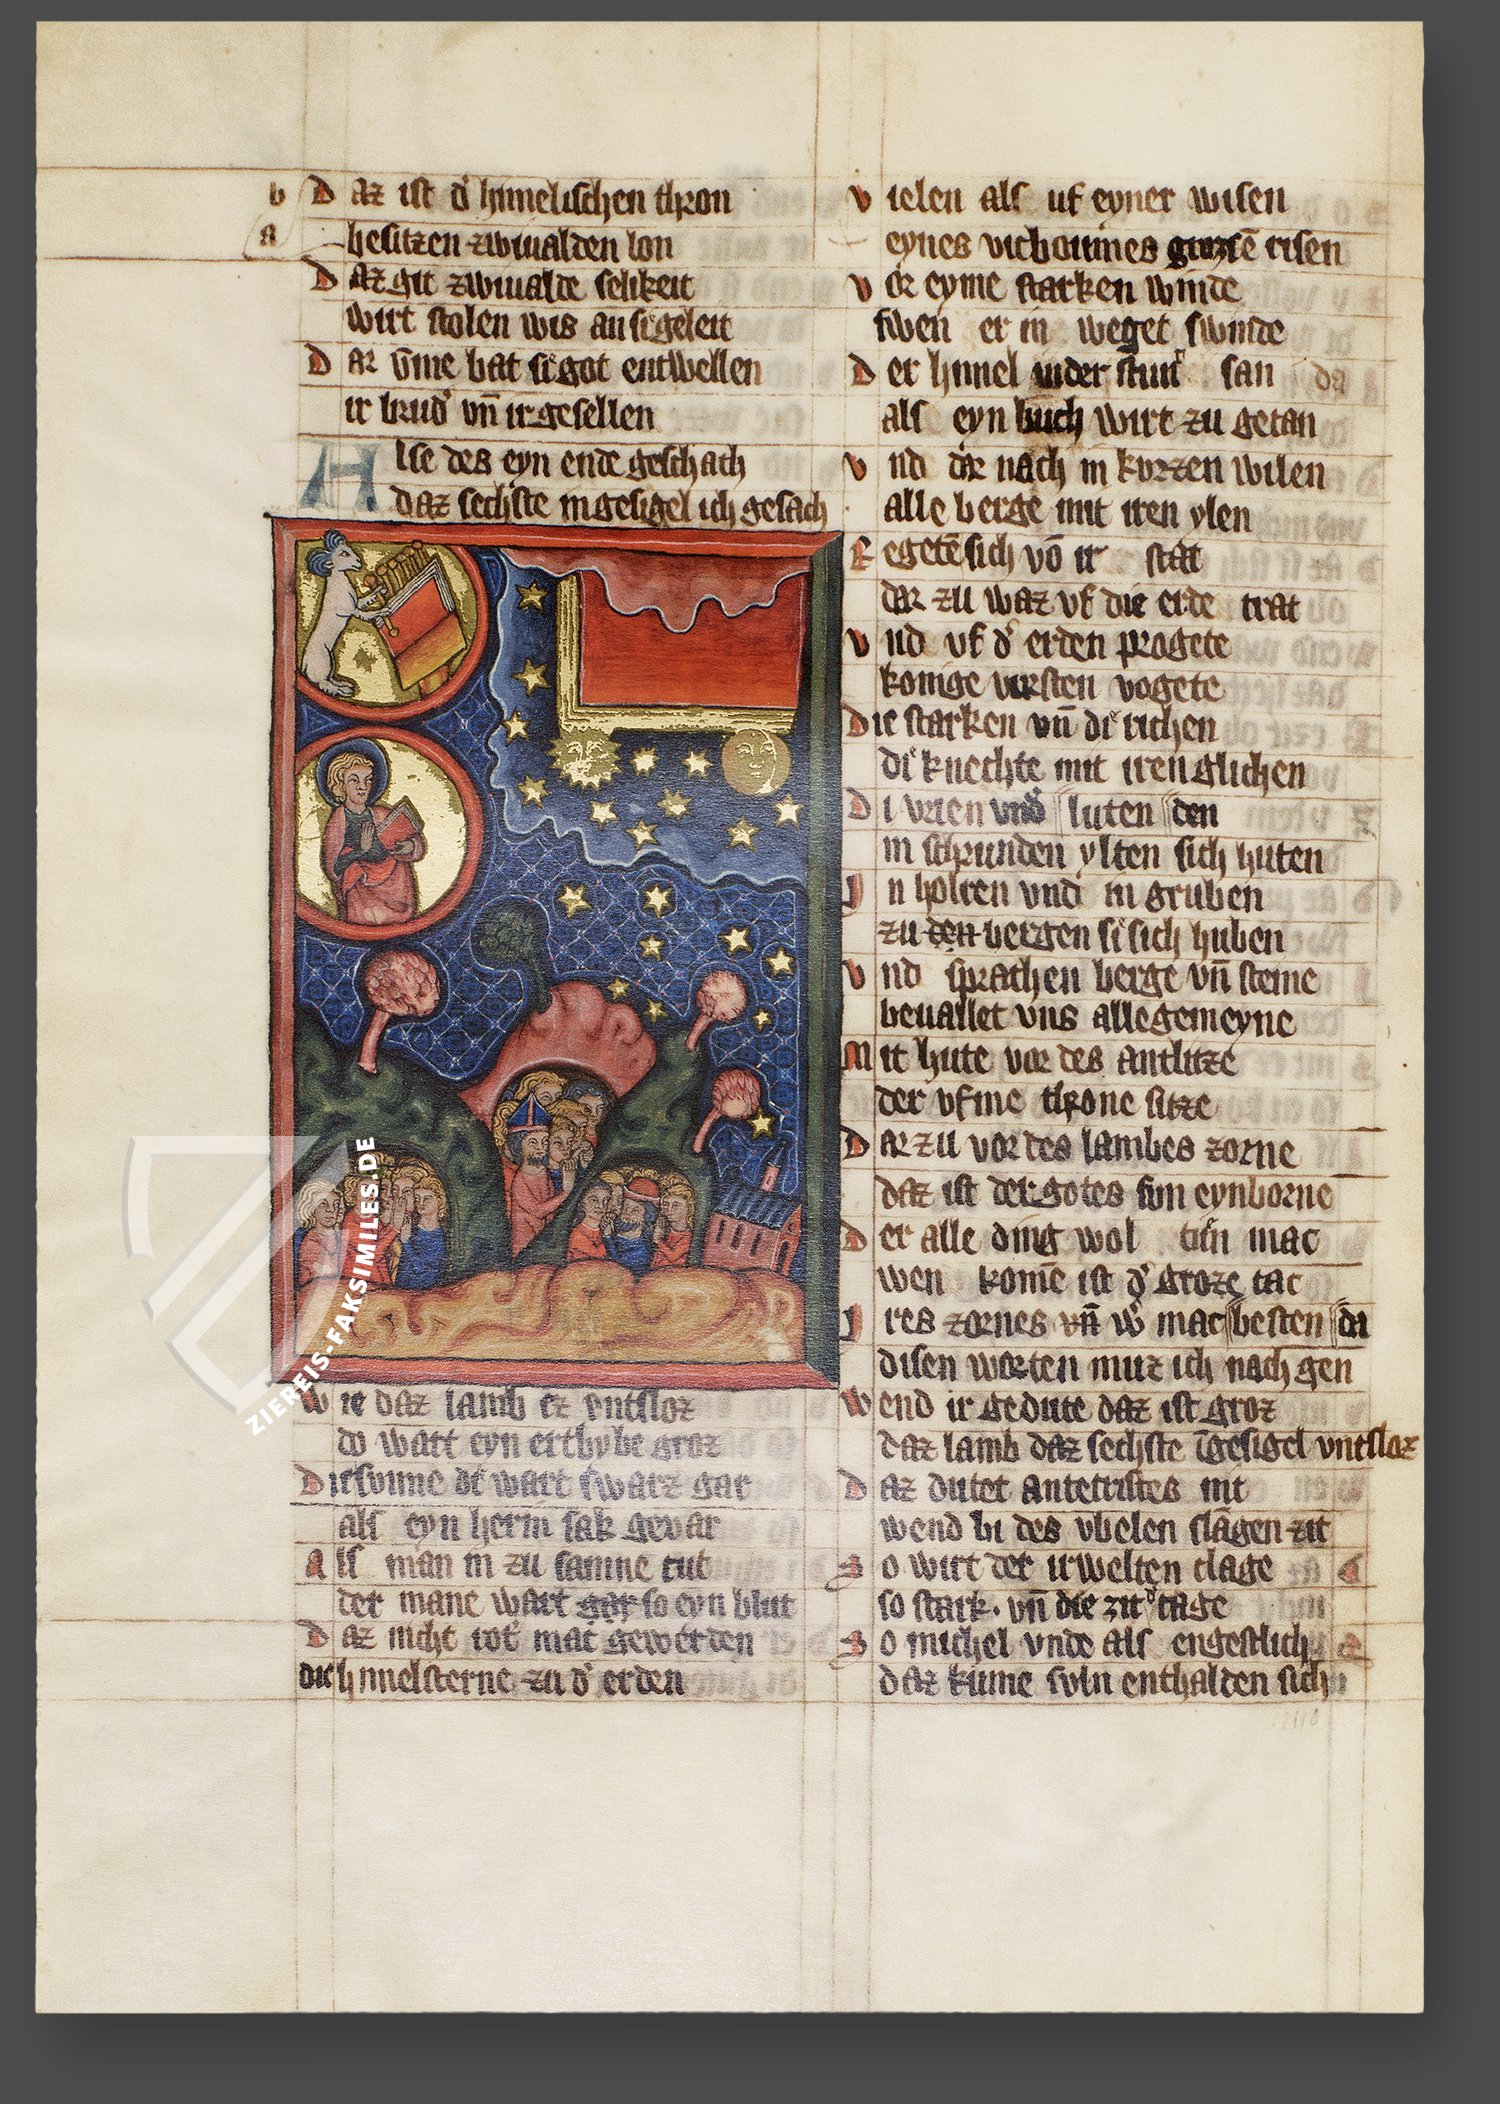 b Daz ist d' himelischen thron
a besitzen zwiualden lon
Daz git zwiualde selikeit
wirt stolen wis an si geleit
Dar vm̄e bat si got entwellen
ir brud' vn̄ ir gesellen
Alse des eyn ende geschach
daz sechste ingesigel ich gesach
Wie daz lamb ez entsloz
do wart eyn erthybe groz
Die sunne di wart swarz gar
als eyn herin sak gevar
Als man in zu samne tut
der mane wart gar so eyn blut
Daz nicht rot' mac gewerden
die himelsterne zu d' erden
Vielen als uf eyner wisen
eynes vicboumes risen
Vor eyme starken winde
swen er in weget swinde
Der himel ind' san da
als eyn buch wirt zu getan
Vnd dar nach in kurzen wilen
alle berge mit iren ylen
Regetē sich vō ir stat
dar zu waz vf die erde trat
Vnd vf d' erden progete
konige vursten vogete
Die starken vn̄ di richen
di knechte mit iren glichen
Di vrien vnd luten den
in schrunden ylten sich huten
In holren vnd in gruben
zu den bergen si sich huben
Vnd sprachen berge vn̄ steine
beuallet vns allegemeyne
Mit hute vor des antlitze
der vfme throne sitze
Dar zu vor des lambes zorne
daz ist der gotes sun eynborne
Der alle ding wol tun mac
wen komē ist d' groze tac
Ires zornes vn̄ w' mac besten da
disen worten muz ich nach gen
Wend ir gedute daz ist groz
daz lamb daz sechste īgesigel vntsloz
Daz dutet Antecristes int
wend bi des vbelen slagen zit
So wirt der irwelten clage
so stark. vn̄ die zit tage
So michel vnde als engestlich
daz kume suln enthalden sich
ZIEREIS-FAKSIMILES.DE